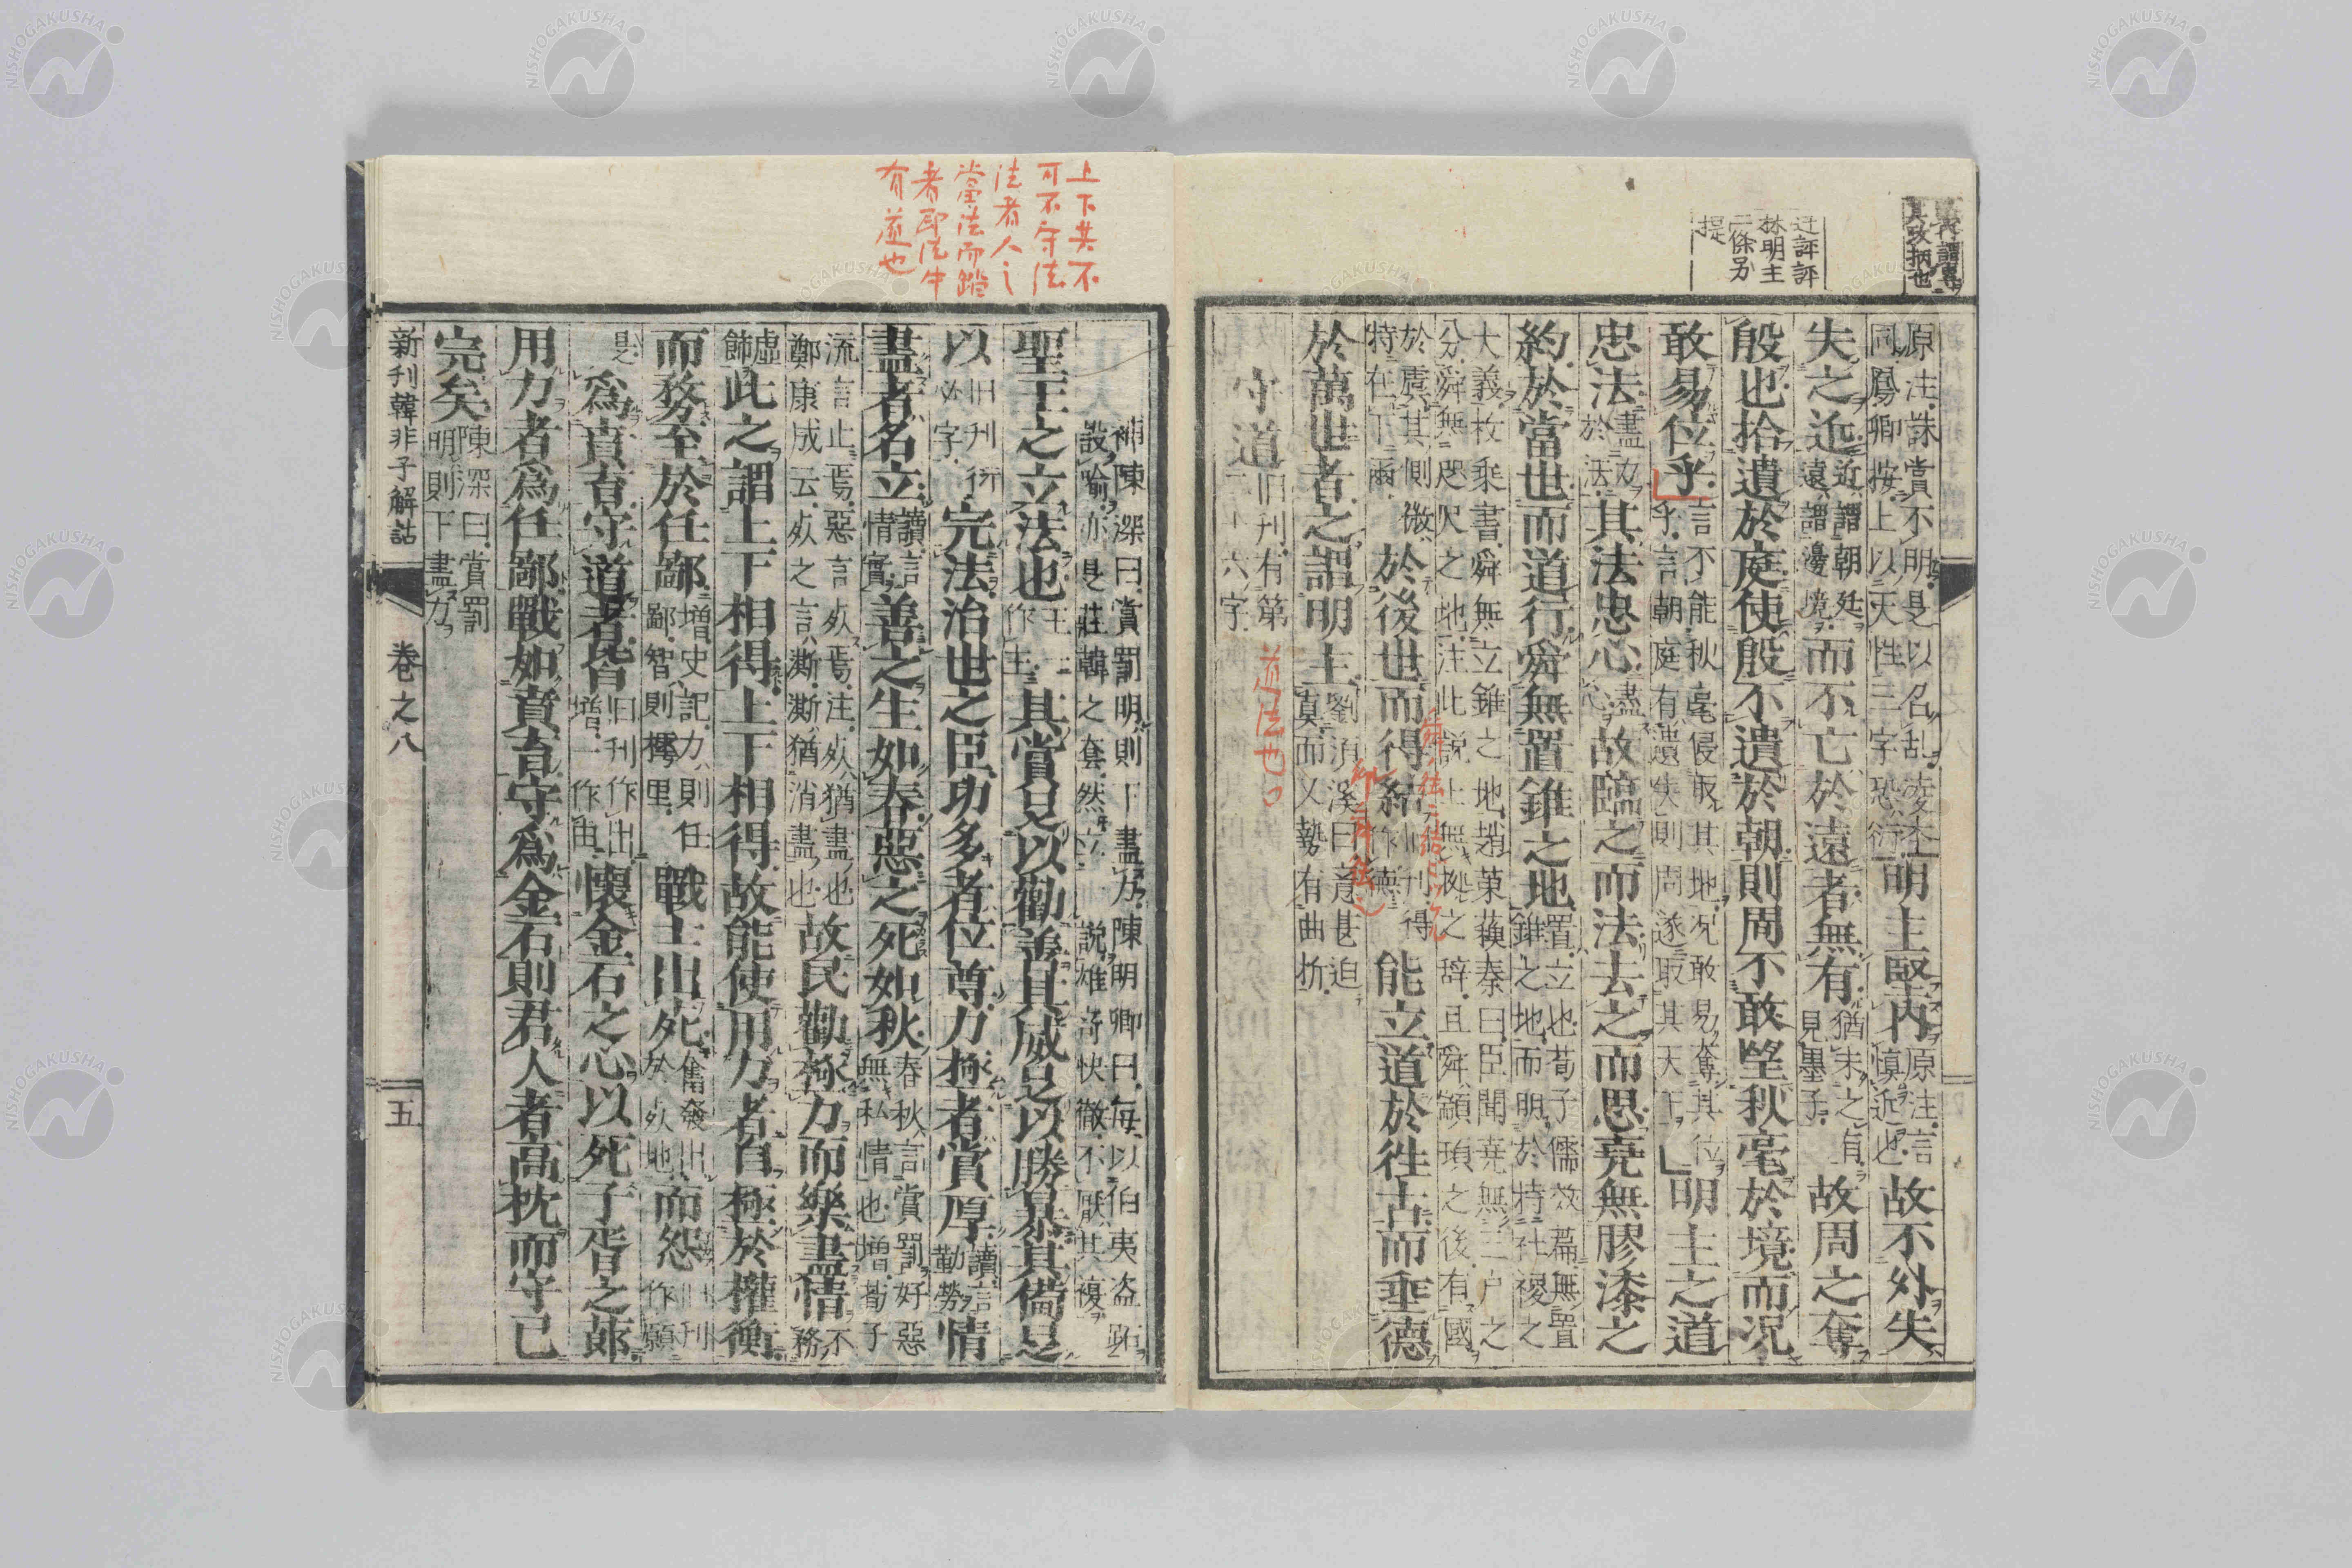 其政柄也
迂評評
林明主
二條另
提
原注誅賞不明是以名乱凌本
同鳳卿按上以天性三字恐衍
明主堅内
原注言
慎近也
故不外失
失之近
近謂朝廷
遠謂邊境
而不亡於遠者無有
猶未之有
見墨子
故周之奪
殷也拾遺於庭使殷不遺於朝則周不敢望秋毫於境而况
敢易位乎
言不能秋毫侵取其地况敢易奪其位
乎言朝庭有遺失則周遂取其天下
明主之道
忠法
盡力
於法
其法忠心
盡
心
故臨之而法去之而思堯無膠漆之
約於當世而道行舜無置錐之地
置立也荀子儒效篇無置
錐之地而明於特社稷之
大義枚乘書舜無立錐之地趙策蘓秦曰臣聞堯無三户之
分舜無咫尺之地注此説士無㨿之辞且舜顓頊之後有國
於虞其側微
特在下爾
於後世而得結
旧刊得
作德
能立道於徃古而垂德
於萬世者之謂明主
劉湏溪曰意甚迫
莫而又勢有曲折
守道
旧刊有第
二十六字
道法也
上下共不
可不守法
法者人之
當法而蹈
者即法中
有道也
補陳深曰賞罰明則下盡力陳明卿曰毎以伯夷盗跖
設喻亦是莊韓之套然立説雄奇快徹不厭其複
聖王之立法也
王一
作主
其賞足以勸善其威足以勝暴其備足
以
旧刊衍
必字
完法治世之臣功多者位尊力極者賞厚
讀言
勤勞
情
盡者名立
讀言
情實
善之生如春惡之死如秋
春秋言賞罰好惡
無私情也増荀子
流言止焉惡言㱦焉注㱦猶盡也
鄭康成云㱦之言澌澌猶消盡也
故民勸極力而樂盡情
不
務
虚
飾
此之謂上下相得上下相得故能使用力者自極於權衡
而務至於任鄙
増史記力則任
鄙智則樗里
戰士出死
奮發出
於㱦地
而怨
旧刊
作願
是
爲賁育守道者皆
旧刊作出
増一作由
懷金石之心以死子胥之莭
用力者爲任鄙戰如賁育守爲金石則君人者高枕而守已
完矣
陳深曰賞罰
明則下盡力
新刊韓非子解詁
卷之八
五